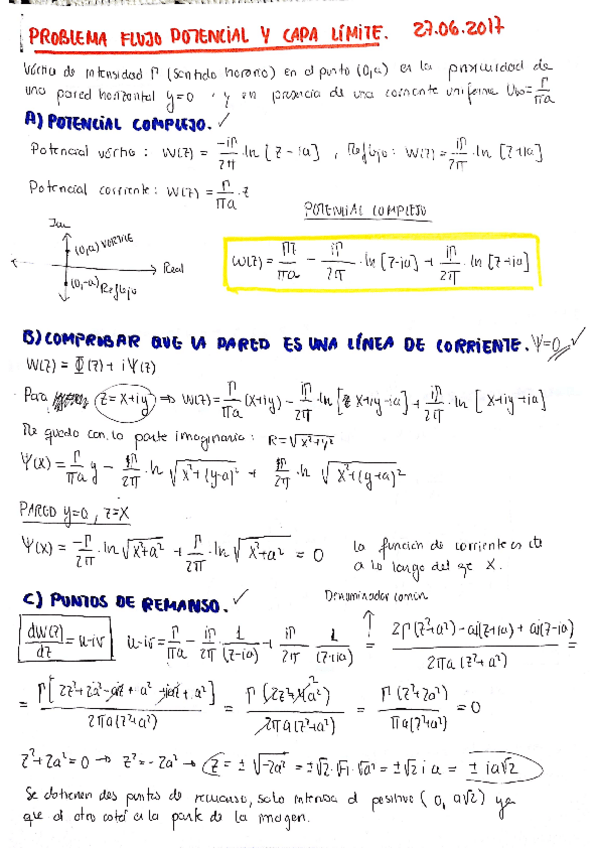 PROBLEMA FLUJO POTENCIAL Y CAPA LÍMITE. 27.06.2017
Vórtice de intensidad Γ (sentido horario) en el punto (0,a) en la proximidad de
una pared horizontal y=0, y en presencia de una corriente uniforme U∞ = Γ/πa
A) POTENCIAL COMPLEJO. ✓
Potencial vórtice: W(z) = -iΓ/2π · ln [z-ia], Reflejo: W(z) = iΓ/2π · ln [z+ia]
Potencial corriente: W(z) = Γ/πa · z
POTENCIAL COMPLEJO
Im
(0,a) VÓRTICE
Real
(0,-a) Reflejo
W(z) = Γz/πa - iΓ/2π · ln [z-ia] + iΓ/2π · ln [z+ia]
B) COMPROBAR QUE LA PARED ES UNA LÍNEA DE CORRIENTE. Ψ=0 ✓
W(z) = Φ(z) + iΨ(z)
Para z=x+iy ⇒ W(z) = Γ/πa (x+iy) - iΓ/2π · ln [x+iy-ia] + iΓ/2π · ln [x+iy+ia]
Me quedo con la parte imaginaria: R=√x²+y²
Ψ(x) = Γ/πa y - Γ/2π · ln √x²+(y-a)² + Γ/2π · ln √x²+(y+a)²
PARED y=0, z=x
Ψ(x) = -Γ/2π · ln √x²+a² + Γ/2π · ln √x²+a² = 0 la función de corriente es cte
a lo largo del eje X.
C) PUNTOS DE REMANSO. ✓
Denominador común
dW(z)/dz = u-iv u-iv = Γ/πa - iΓ/2π 1/(z-ia) + iΓ/2π 1/(z+ia) = 2Γ(z²+a²)-ai(z+ia)+ai(z-ia) / 2πa(z²+a²) =
= Γ[2z²+2a²-aiz+a²+aiz+a²] / 2πa(z²+a²) = Γ(2z²+4a²) / 2πa(z²+a²) = Γ(z²+2a²) / πa(z²+a²) = 0
z²+2a²=0 → z²=-2a² → z = ±√-2a² = ±√2·√-1·√a² = ±√2 i a = ± ia√2
Se obtienen dos puntos de remanso, solo interesa el positivo (0, a√2) ya
que el otro está en la parte de la imagen.